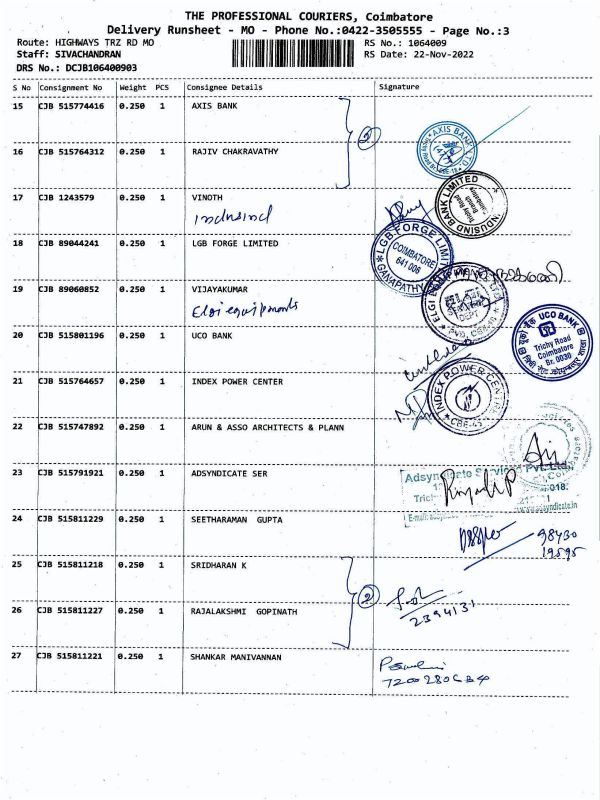 THE PROFESSIONAL COURIERS, Coimbatore
Delivery Runsheet - MO - Phone No.:0422-3505555 - Page No.:3
Route: HIGHWAYS TRZ RD MO
RS No.: 1064009
Staff: SIVACHANDRAN
RS Date: 22-Nov-2022
DRS No.: DCJB106400903
S No Consignment No Weight PCS Consignee Details Signature
15 CJB 515774416 0.250 1 AXIS BANK
2
AXIS BANK LTD
16 CJB 515764312 0.250 1 RAJIV CHAKRAVATHY
17 CJB 1243579 0.250 1 VINOTH
indusind
INDUSIND BANK LIMITED
Trichy Road
Coimbatore
Branch
18 CJB 89044241 0.250 1 LGB FORGE LIMITED
LGB FORGE LIMITED
COIMBATORE
641 006
GANAPATHY
19 CJB 89060852 0.250 1 VIJAYAKUMAR
Elgi equipments
20 CJB 515801196 0.250 1 UCO BANK
यूको बैंक UCO BANK
Trichy Road
Coimbatore
Br. 0030
21 CJB 515764657 0.250 1 INDEX POWER CENTER
INDEX POWER CENTRE
CBE-45
22 CJB 515747892 0.250 1 ARUN & ASSO ARCHITECTS & PLANN
23 CJB 515791921 0.250 1 ADSYNDICATE SER
Adsyndicate Services Pvt. Ltd.
018.
24 CJB 515811229 0.250 1 SEETHARAMAN GUPTA
98430
19595
25 CJB 515811218 0.250 1 SRIDHARAN K
2
2394131
26 CJB 515811227 0.250 1 RAJALAKSHMI GOPINATH
27 CJB 515811221 0.250 1 SHANKAR MANIVANNAN